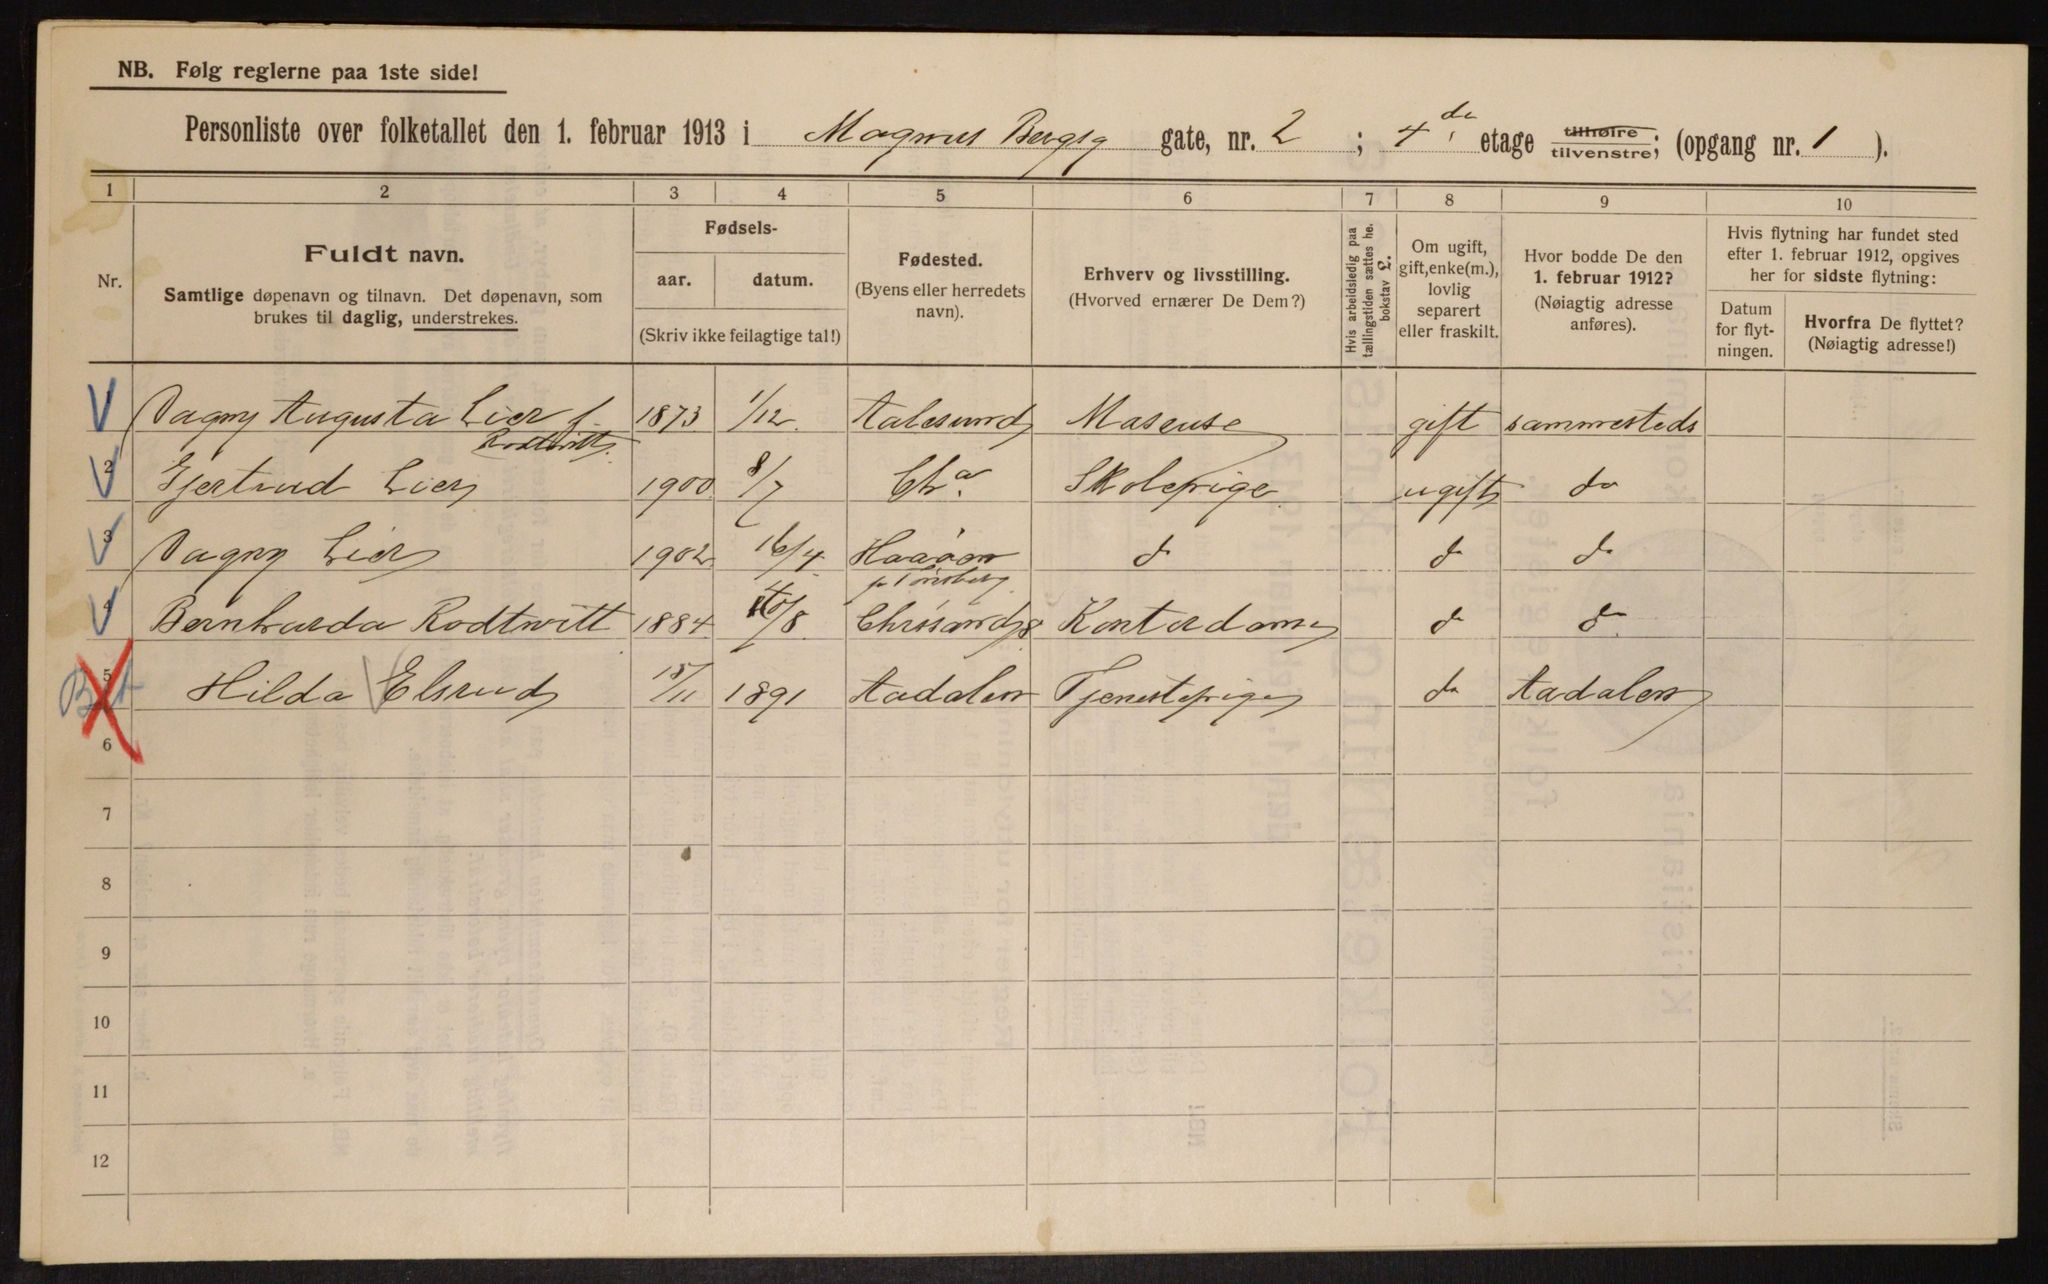 NB. Følg reglerne paa 1ste side!
Personliste over folketallet den 1. februar 1913 i Magnus Bergs gate, nr. 2 ; 4de etage tilhøire tilvenstre; (opgang nr. 1 ).
1 2 3 4 5 6 7 8 9 10
Nr.
Fuldt navn.
Samtlige døpenavn og tilnavn. Det døpenavn, som
brukes til daglig, understrekes.
Fødsels-
aar. datum.
(Skriv ikke feilagtige tal!)
Fødested.
(Byens eller herredets
navn).
Erhverv og livsstilling.
(Hvorved ernærer De Dem?)
Hvis arbeidsledig paa
tællingstiden sættes he.
bokstav £.
Om ugift,
gift, enke(m.),
lovlig
separert
eller fraskilt.
Hvor bodde De den
1. februar 1912?
(Nøiagtig adresse
anføres).
Hvis flytning har fundet sted
efter 1. februar 1912, opgives
her for sidste flytning:
Datum
for flyt-
ningen.
Hvorfra De flyttet?
(Nøiagtig adresse!)
1 Dagny Augusta Lier f. 1873 1/12. Aalesund Maseuse gift sammesteds
Rodtwitt.
2 Gjertrud Lier 1900 8/7 Chra. Skolepige ugift do
3 Dagny Lier 1902 16/4 do do do
4 Bernharda Rodtwitt 1884 /8 Chrisand S Kontordame do do
5 Hilda Elsrud 15/11 1891 Aadalen Tjenestepige do Aadalen
6
7
8
9
10
11
12